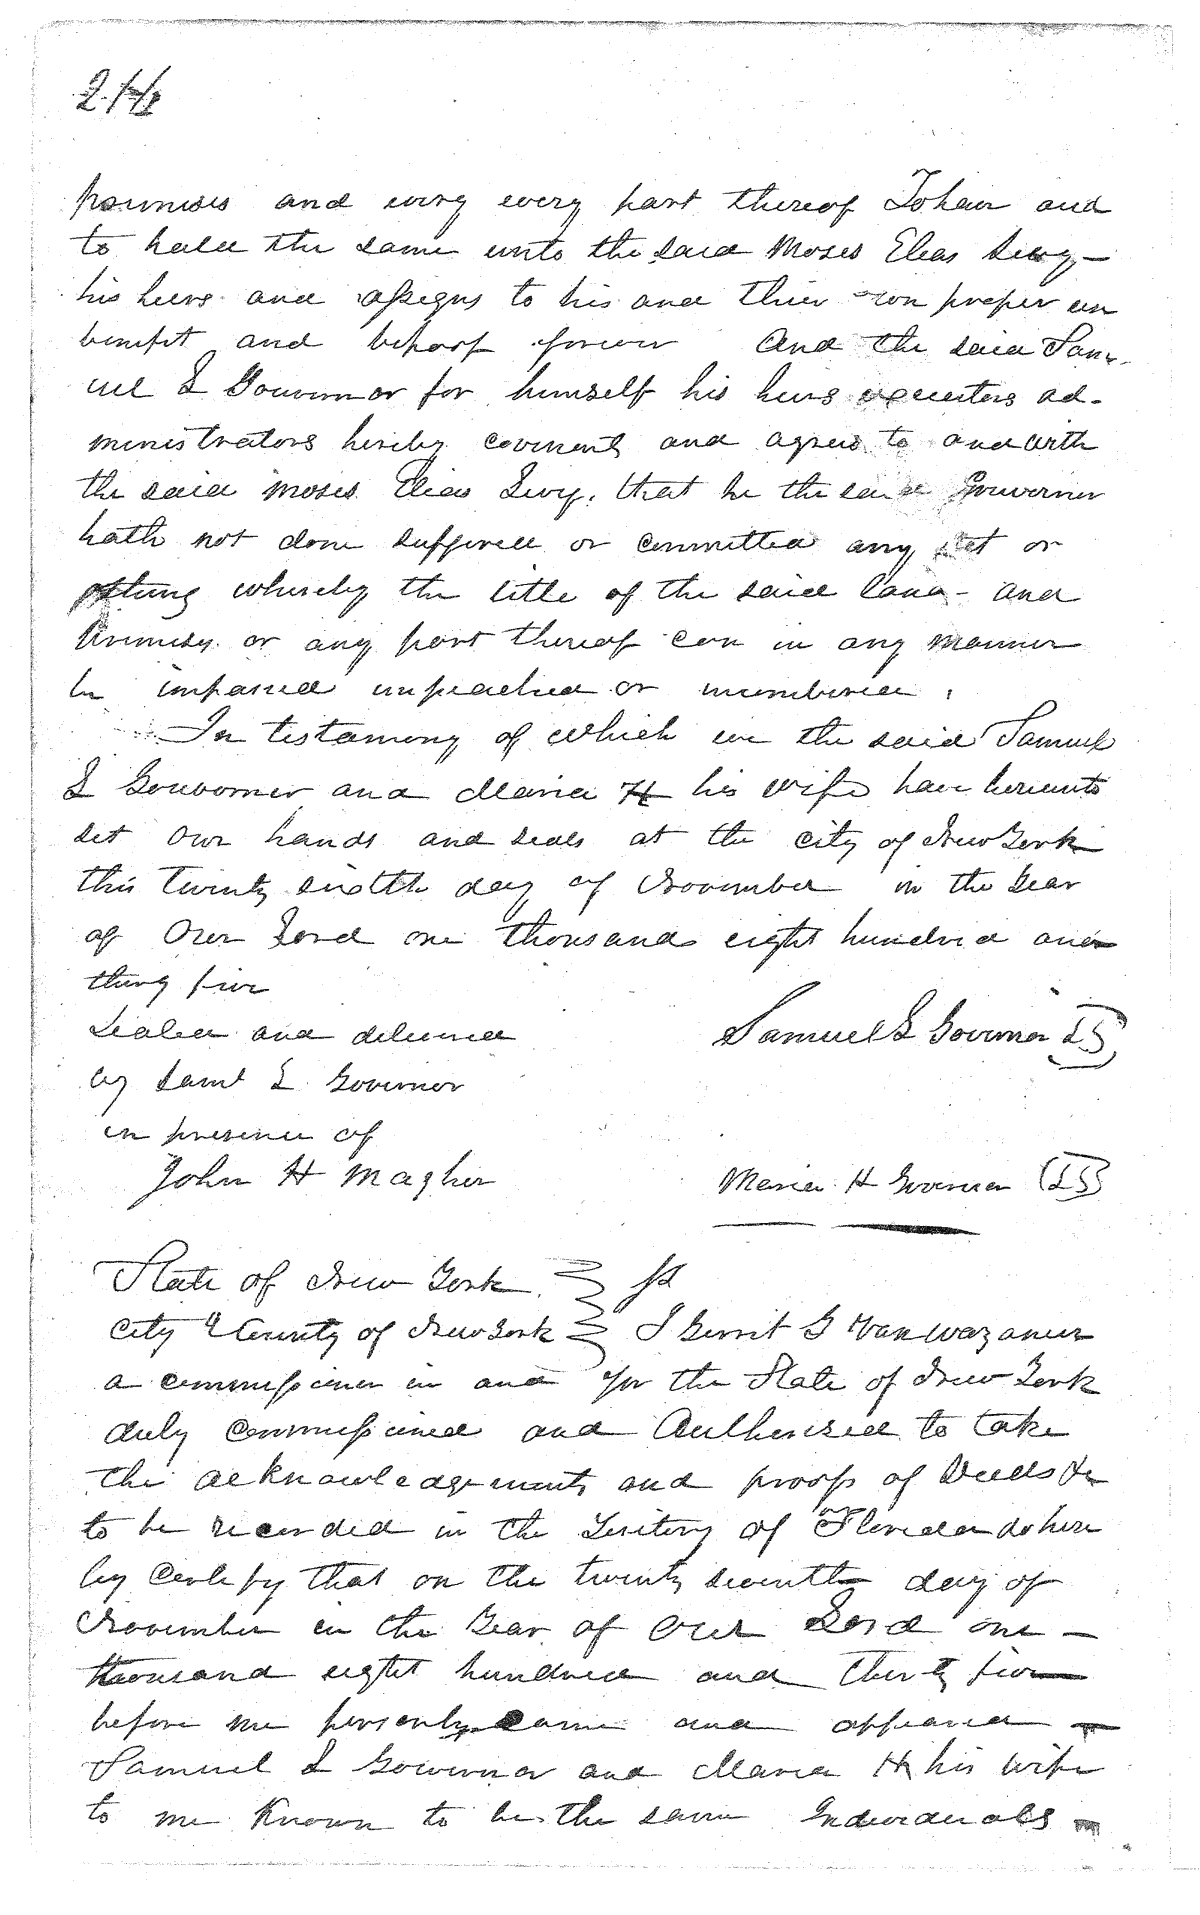 premises and every every part thereof To have and
to hold the same unto the said Moses Elias Levy -
his heirs and assigns to his and their own proper use
benefit and behoof forever And the said Sam-
uel L Gouverneur for himself his heirs executors ad-
ministrators hereby covenants and agrees to and with
the said Moses Elias Levy, that he the said Gouverneur
hath not done suffered or committed any act or
thing whereby the title of the said land - and
Premises or any part thereof can in any manner
be impaired impeached or incumbered.
In testamony of which we the said Samuel
L Gouverneur and Maria H his wife have hereunto
set our hands and seals at the city of New York
this Twenty sixth day of November in the year
of Our Lord one thousand eight hundred and
thirty five
Sealed and delivered
Samuel L Governor LS
by Saml L Governor
in presence of
John H Magher
Maria H Governor LS
State of New York } ss
City & County of New York } I Gerrit G Van Wagenen
a commissioner in and for the State of New York
duly commissioned and Authorised to take
the acknowledgements and proofs of Deeds &c
to be recorded in the Teritory of Florida do here
by Certify that on the twenty seventh day of
November in the Year of Our Lord one -
thousand eight hundred and thirty five
before me personly came and appeared
Samuel L Governor and Maria H his wife
to me Known to be the same Individuals